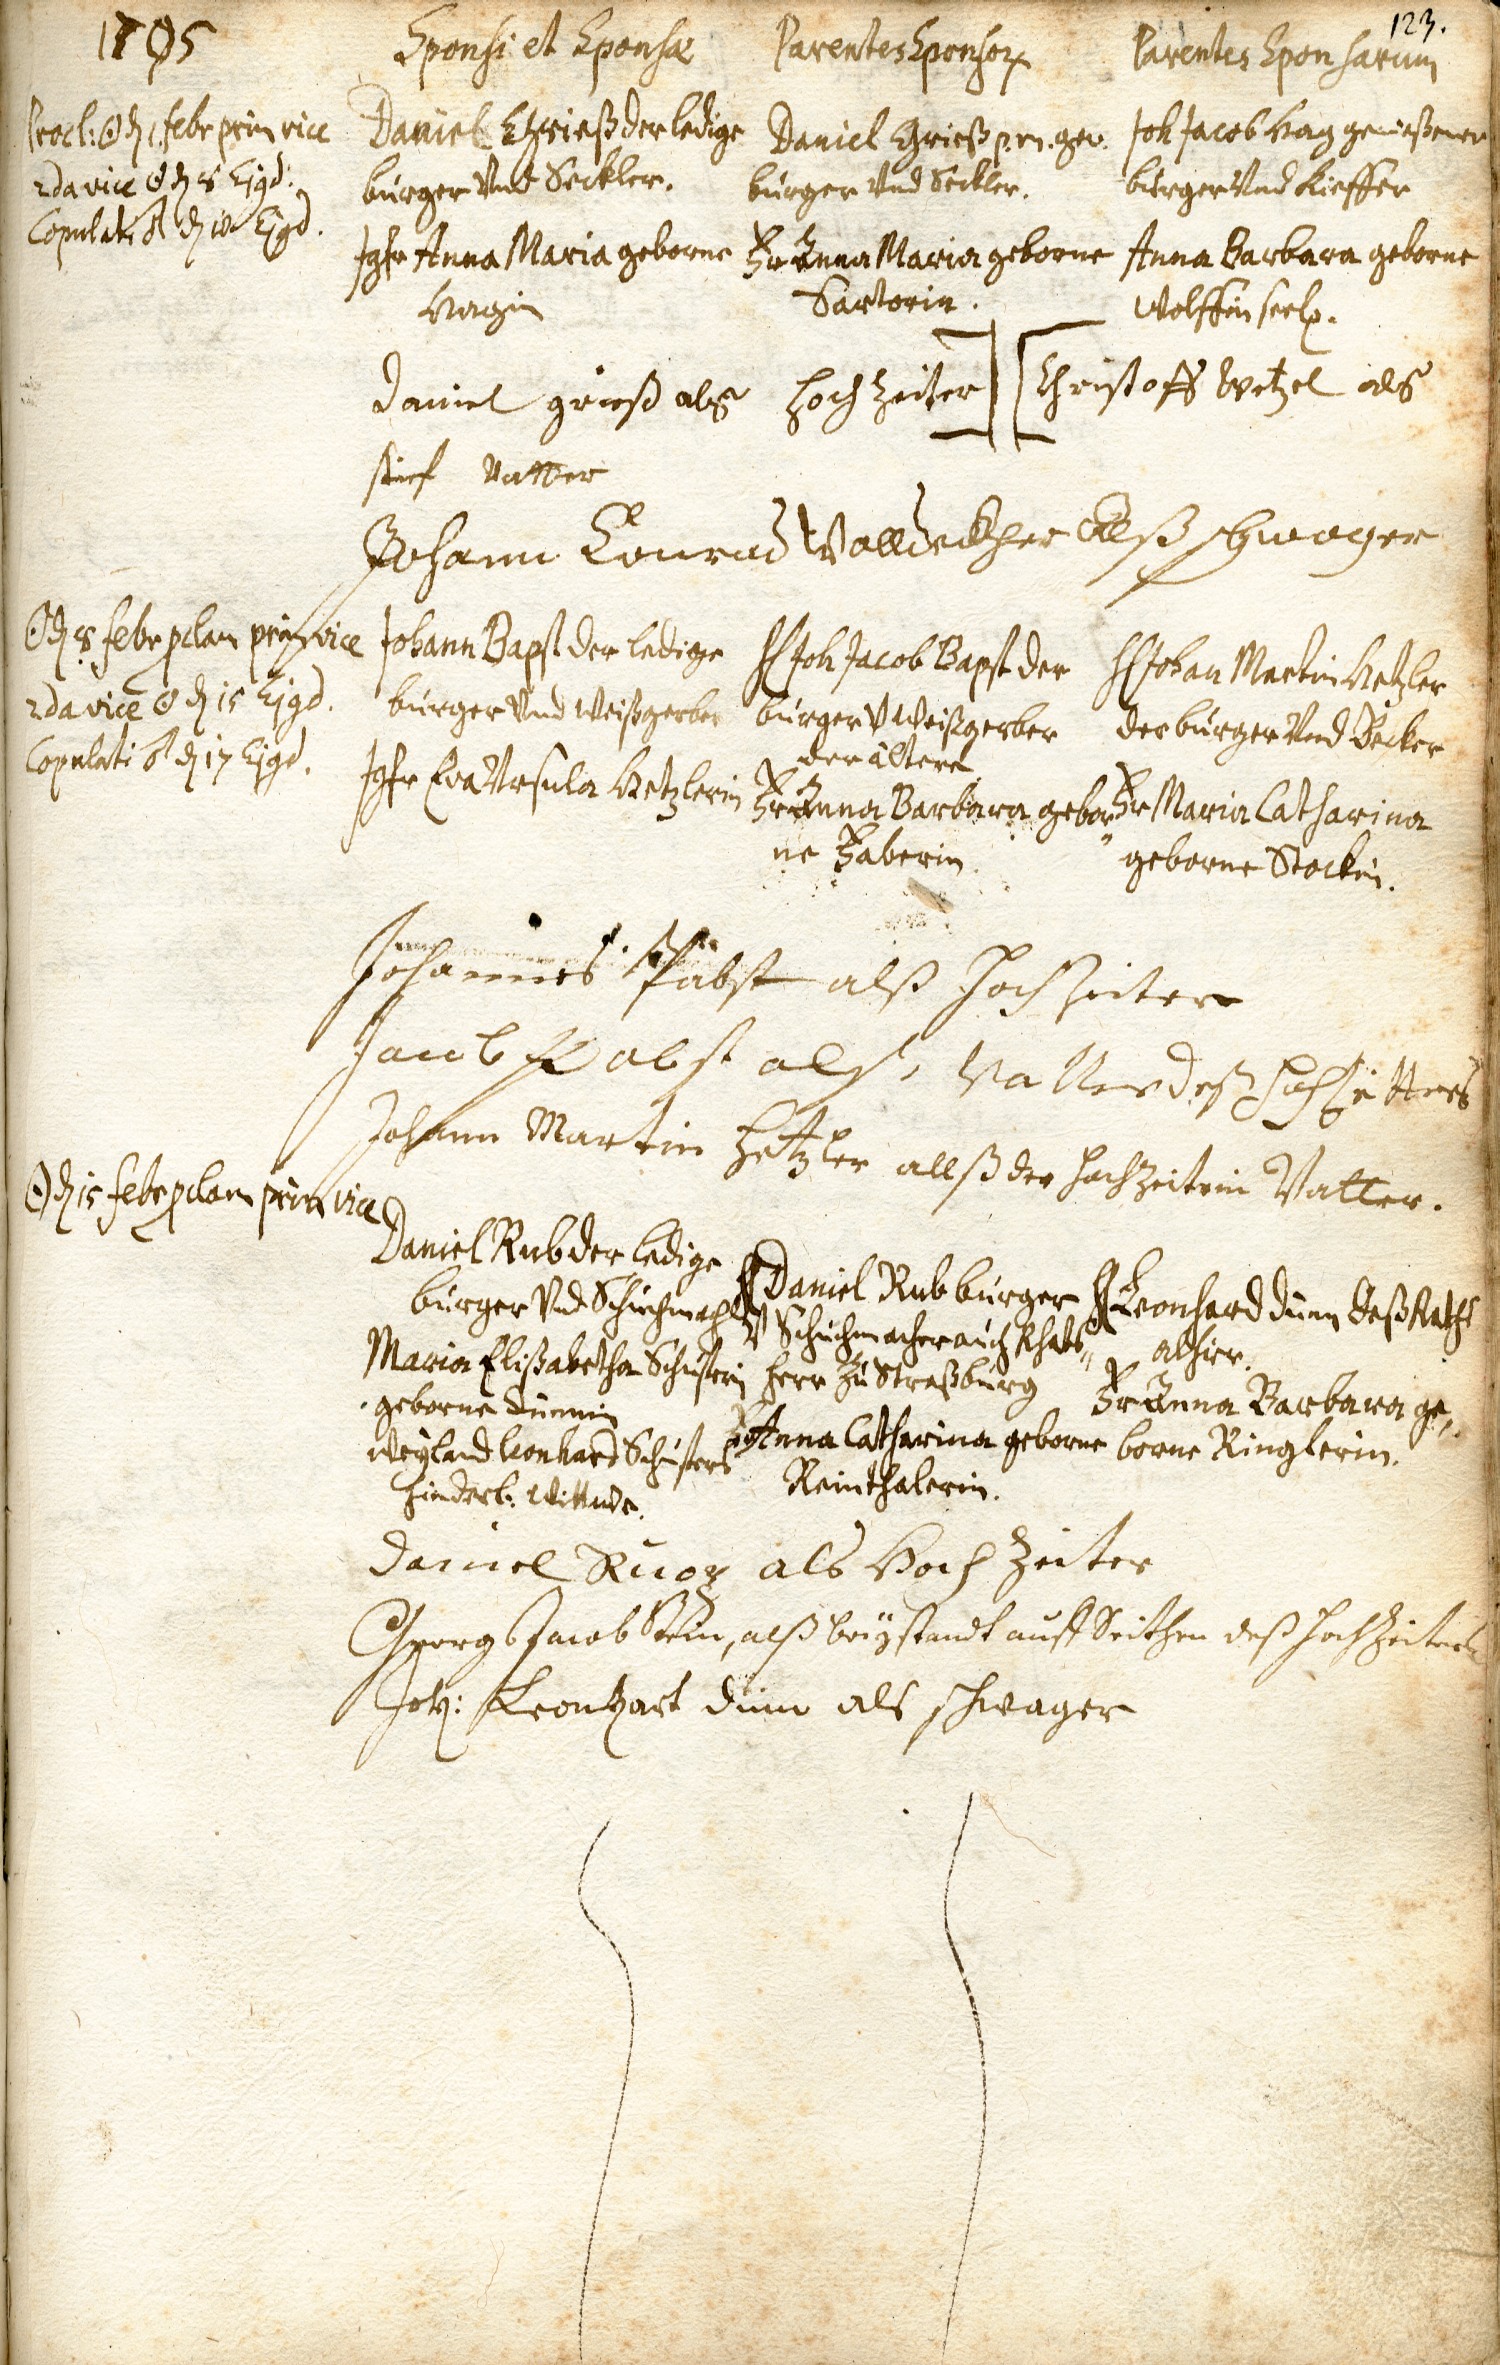 123.
1705
Sponsi et Sponsæ
Parentes Sponsor
Parentes Sponsarum
Procl: ☉ d 1. febr prim vice
2da vice ☉ d 8 Ejgd:
Copulati d 10 Ejgd.
Daniel Grieß der ledige
burger Vnd Seckler.
Jgfr Anna Maria geborne
Hagin
Daniel Grieß p.m. gew.
burger Vnd Seckler.
Fr Anna Maria geborne
Sartoria.
Joh Jacob Hag geweßener
burger Vnd Kieffer
Anna Barbara geborne
Wolffin seel.
Daniel grieß als hochzeiter
Christoff Wetzel als
stief Vatter
Johann Conrad Walldeckher Allß schwager
☉ d 8 febr pclam prim vice
2da vice ☉ d 15 Ejgd.
Copulati d 17 Ejgd.
Johann Bapst der ledige
burger Vnd Weißgerber
Jgfr Eva Ursula Hetzlerin
H Joh Jacob Bapst der
burger V Weißgerber
der ältere
Fr Anna Barbara gebor
ne Faberin
H Johan Martin Hetzler
der burger Vnd Becker
Fr Maria Catharina
geborne Stockin.
Johannes Pabst alß Hochzeiter
Jacob Pabst alß Vatter deß Hochzeitters
Johann Martin Hetzler allß der hochzeiterin Vatter.
☉ d 15 febr pclam prim vice
Daniel Rub der ledige
burger Vnd Schuhmacher
Maria Elißabetha Schusterin
geborne Dürrin
Weyland Leonhard Schusters
hinderl: Wittwe.
H Daniel Rub burger
V Schuhmacher auch Rhats
herr Zu Straßburg
Fr Anna Catharina geborne
Reinthalerin.
H Leonhard dürr deß Raths
alhier.
Fr Anna Barbara ge
borne Ringlerin.
Daniel Ruop als Hochzeiter
Georg Jacob , alß beystandt auff Seithen deß Hochzeiters
Joh: Leonhart dürr als schwager